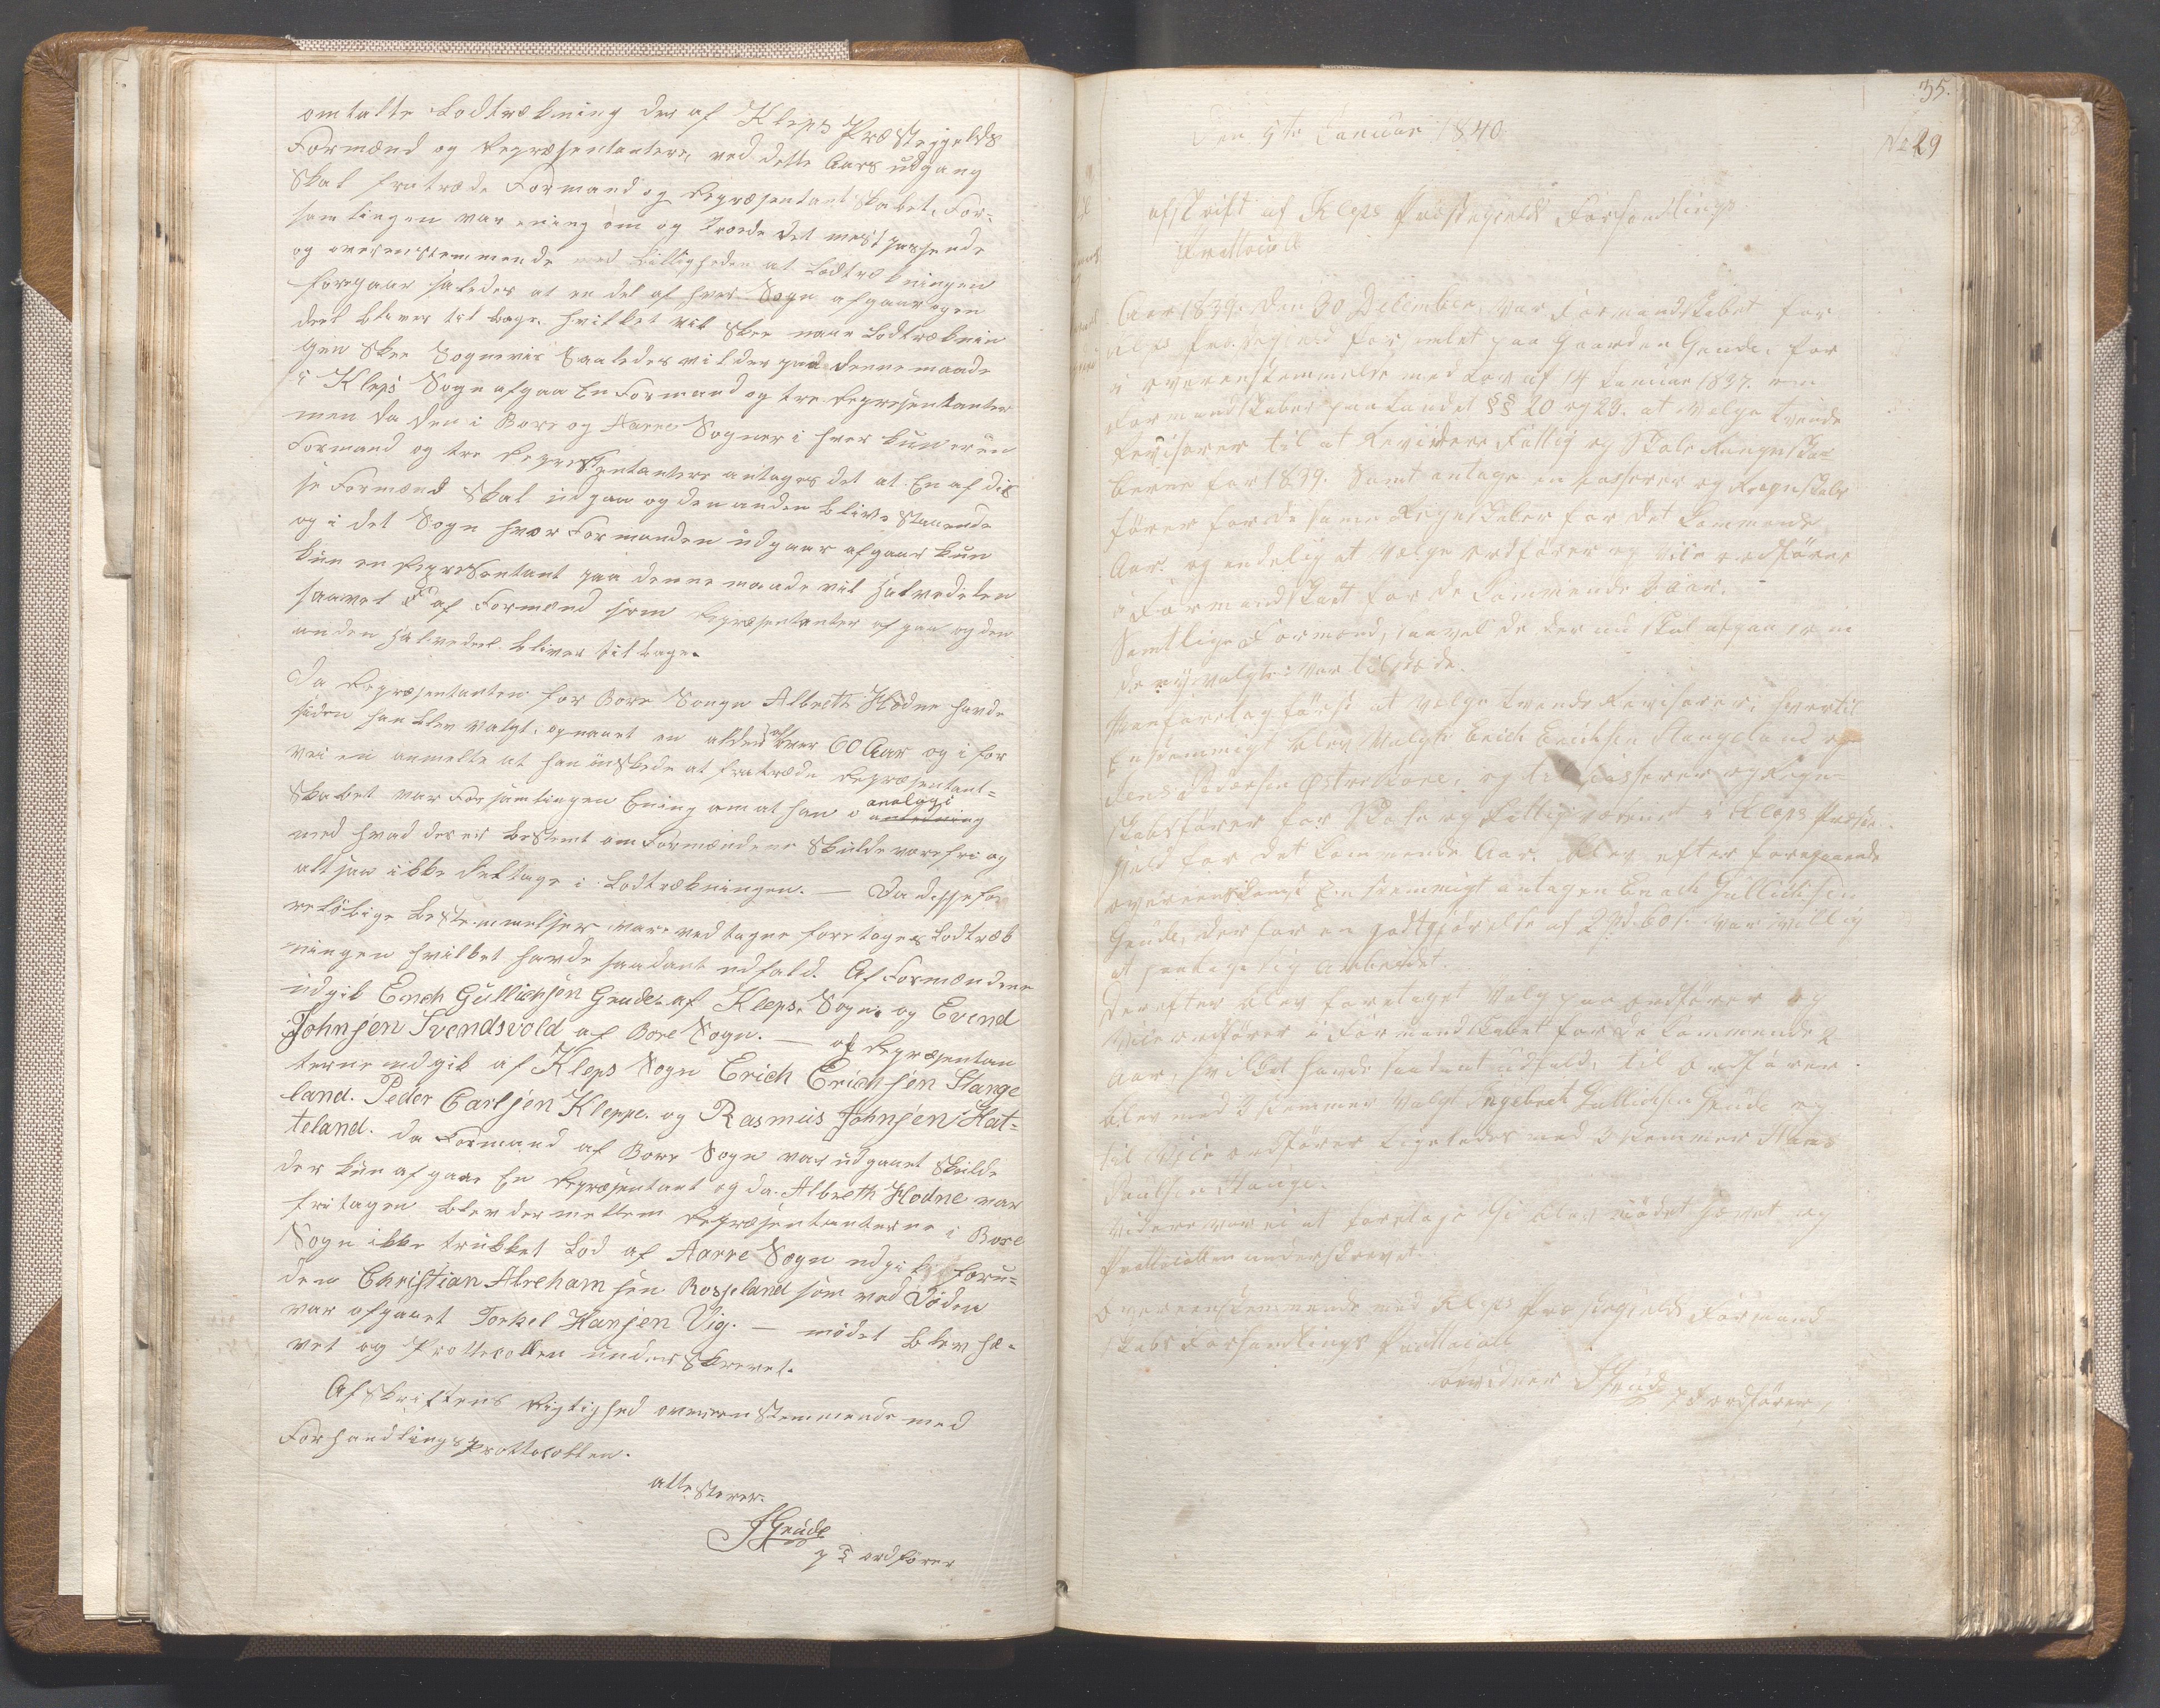 omtalte Lodtrækning der af Kleps Præstegjelds
Formænd og Repræsentantere, ved dette Aars udgang
skal fratræde Formand og Repræsentantskabet. For-
samlingen var ening om og troede det mest passende
og overenstemmende med billigheden at Lodtrækningen
foregaar saaledes at en del af hver Sogn afgaar og en
deel bliver tilbage. hvilket vil skee naar Lodtræknin
gen skeer Sognevis Saaledes vil der paa denne maade
i Kleps Sogn afgaa En Formand og tre Represententer
men da den i Bore og Aarre Sogner i hver kun er een
Formand og tre Represententere antages det at En af dis
se Formænd skal udgaa og den anden blive staaende
og i det Sogn hvor Formanden udgaar afgaar kun
kun en Representant paa denne maade vil halvedelen
saavel af Formænd som Repræsentanter afgaa og den
anden halvedeel bliver tilbage.
Da Repræsentanten for Bore Songn Albreth Hodne havde
siden han blev valgt, opnaaet en alder af over 60 Aar og i for
vei en anmelte at han ønskede at fratræde Repræsentant=
skabet var Forsamlingen Ening om at han i analogi
med hvad der er bestemt om Formændene skulde være fri og
altsaa ikke deltage i Lodtrækningen. — Da disse fo
reløbige bestemmelser vare vedtagne foretoges Lodtræk
ningen hvilket havde saadant udfald. Af Formændene
udgik Enoch Gullichsen Grude af Kleps Sogn og Evend
Johnsen Svendsvold af Bore Sogn. — af Repræsentan
terne udgik af Kleps Sogn Erich Erichsen Stange
land. Peder Carlsen Kleppe. og Rasmus Johnsen Hat=
teland. da Formand af Bore Sogn var udgaaet skulde
der kun afgaae En Repræsentant og da Albreth Hodne var
fritagen blev der mellem Repræsentanterne i Bore
Sogn ikke trukket Lod af Aarre Sogn udgik foru=
den Christian Abrehamsen Rosseland som ved Døden
var afgaaet Torkel Hansen Vig. — mødet blev hæ-
vet og Prottocollen underskrevet.
Afskriftens Rigtighed overenstemmende med
Forhandlingsprottocollen.
attesterer.
Grude
p t ordfører
35.
Den 5te Januar 1840
No 29
afskrift af Kleps Præstegjelds Forhandlings
Prottocoll
Aar 1839. den 30 December, var Formandskabet for
Kleps Præstegjeld forsamlet paa Gaarden Grude, for
i overenstemmelse med Lov af 14 Januar 1837. om
Formandskaber paa Landet §§ 20 og 23. at vælge tvende
Revisorer til at Revidere Fattig og Skole Rægnska
berne for 1839. Samt antage en Casserer og Regnskabs
fører for de samme Regnskaber for det kommende
Aar. og endelig at vælge ordfører og vice ordfører
i Formandskabet for de kommende 2 Aar.
Samtlige Formænd, saavel de der nu skal afgaa som
de nyvalgte var tilstæde.
Man foretog først at vælge tvende Revisorer, hvertil
Enstemmigt blev valgt Erich Erichsen Stangeland og
Jens Pedersen Østrebore, og til Casserer og Regn=
skabsfører for Skole og Fattigvæsenet i Kleps Præste
gjeld for det kommende Aar. blev efter foregaaende
overeenskomst Enstemmigt antagen Enoch Gullichsen
Grude, der for en godtgjørelse af 2 Spd. 60 s. var villig
at paatage sig Arbeidet.
Derefter blev foretaget valg paa ordfører og
Vice ordfører i Formandskabet for de kommende 2
Aar, hvilket havde saadant udfald, til ordfører
blev med 3 stemmer valgt Ingebreth Gullichsen Grude og
til Vice ordfører ligeledes med 3 stemmer Hans
Paulsen Hauge.
Videre var ei at foretage Si blev mødet hævet og
Prottocollen underskrevet.
Overeenstemmende med Kleps Præstegjelds Formand
skabs Forhandlings Prottocoll
bevidner Grude
p t ordfører